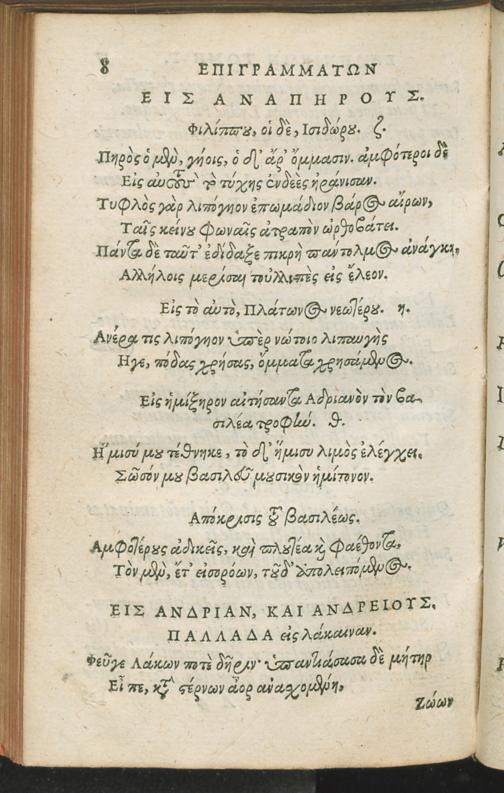 8
ΕΠΙΓΡΑΜΜΑΤΩΝ
ΕΙΣ ΑΝΑΠΗΡΟΥΣ.
Φιλίππου, οἱ δὲ, Ισιδώρου. ζ.
Πηρὸς ὁ μὲν, γήοις, ὁ δ' ἄρ' ὄμμασιν. ἀμφότεροι δὲ
Εἰς αὑτοὺς τὸ τύχης ἐνδεὲς ἠράνισαν.
Τυφλὸς γὰρ λιπόγηον ἐπωμάδιον βάρος αἴρων,
Ταῖς κείνου φωναῖς ἀτραπὸν ὠρθοβάτει.
Πάντα δὲ ταῦτ' ἐδίδαξε πικρὴ πάντολμος ἀνάγκη,
Αλλήλοις μερίσαι τοὐλλιπὲς εἰς ἔλεον.
Εἰς τὸ αὐτὸ, Πλάτωνος νεωτέρου. η.
Ανέρα τις λιπόγηον ὑπὲρ νώτοιο λιπαυγὴς
Ηγε, πόδας χρήσας, ὄμματα χρησάμενος.
Εἰς ἡμίξηρον αἰτήσαντα Αδριανὸν τὸν βα-
σιλέα τροφήν. θ.
Ημισύ μου τέθνηκε, τὸ δ' ἥμισυ λιμὸς ἐλέγχει.
Σῶσόν μου βασιλεῦ μουσικὸν ἡμίτονον.
Απόκρισις τοῦ βασιλέως.
Αμφοτέρους ἀδικεῖς, καὶ πλουτέα καὶ φαέθοντα,
Τὸν μὲν, ἔτ' εἰσορόων, τοῦ δ' ἀπολειπόμενος.
ΕΙΣ ΑΝΔΡΙΑΝ, ΚΑΙ ΑΝΔΡΕΙΟΥΣ.
ΠΑΛΛΑΔΑ εἰς λάκαιναν.
Φεῦγε Λάκων ποτὲ δῆριν· ὑπαντιάσασα δὲ μήτηρ
Εἶπε, κατὰ στέρνων ἄορ ἀναχομένη,
Ζώων